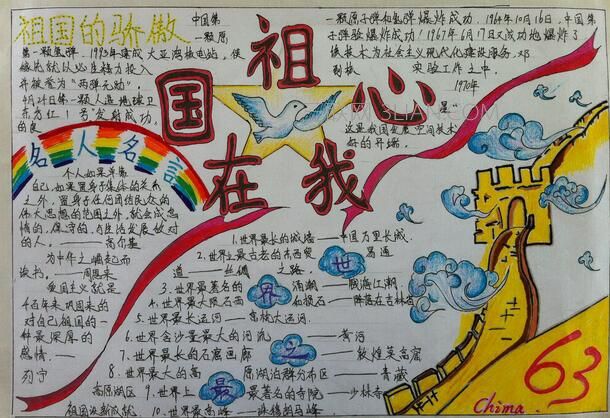 祖国的骄傲
中国第
一颗原
一颗原子弹和氢弹爆炸成功. 1964年10月16日, 中国第
子弹验爆炸成功! 1967年6月17日又成功地爆炸了
技术为社会主义现代化建设服务, 邓
实验工作之中.
1970年
星"
这是我国发展"空间技术"
好的开端.
第一颗氢弹. 1993年建成大亚湾核电站, 使
并被誉为"两弹元勋".
4月24日第一颗人造地球卫
东方红1号"发射成功.
的良
祖国
在我
心
名人名言
个人如果单靠
自己, 如果置身于集体的关系
之外, 置身于任何团结民众的
伟大思想的范围之外, 就会成怠
惰的、保守的、与生活发展敌对
的人. ——高尔基
为中华之崛起而
读书. ——周恩来
爱国主义就是
千百年来巩固起来的
对自己祖国的一
种最深厚的
感情. ——
列宁
祖国改新成就
世界之最
1. 世界最长的城墙——中国万里长城.
2. 世界上最古老的东西贸易通
道——丝绸之路.
3. 世界最著名的涌潮——钱塘江潮.
4. 世界最大陨石雨——陨落在吉林省
5. 世界最长运河——京杭大运河.
6. 世界含沙量最大的河流——黄河
7. 世界最长的石窟画廊——敦煌莫高窟
8. 世界最大的高原湖泊群分布区——青藏
高原湖区
9. 世界上最著名的寺院——少林寺
10. 世界最高峰——珠穆朗玛峰
63
China